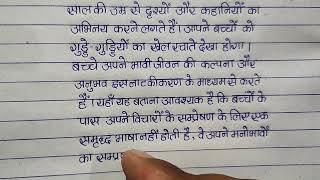 साल की उम्र से दृश्यों और कहानियों का
अभिनय करने लगते हैं। आपने बच्चों को
गुड्डे-गुड्डियों का खेल रचाते देखा होगा।
बच्चे अपने भावी जीवन की कल्पना और
अनुभव इस नाटकीकरण के माध्यम से करते
हैं। यहाँ यह बताना आवश्यक है कि बच्चों के
पास अपने विचारों के सम्प्रेषण के लिए एक
समृद्ध भाषा नहीं होती है, वे अपने मनोभावों
का सम्प्रे